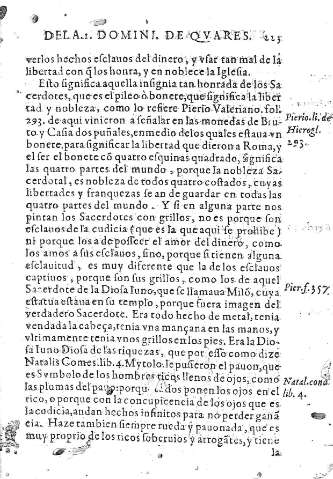 DE LA .1. DOMINI. DE QVARES. 225
verlos hechos esclauos del dinero, y vsar tan mal de la
libertad con q̃ los honra, y en noblece la Iglesia.
Esto significa aquella insignia tan honrada de los Sa
cerdotes, que es el pileo ò bonete, que significa la liber
tad y nobleza, como lo refiere Pierio Valeriano. fol.
293. de aqui vinieron a señalar en las monedas de Bru-
to y Casia dos puñales, en medio de los quales estaua vn
bonete, para significar la libertad que dieron a Roma, y
el ser el bonete cõ quatro esquinas quadrado, significa
las quatro partes del mundo, porque la nobleza Sa-
cerdotal, es nobleza de todos quatro costados, cuyas
libertades y franquezas se an de guardar en todas las
quatro partes del mundo. Y si en alguna parte nos
pintan los Sacerdotes con grillos, no es porque son
esclauos de la cudicia (que es la que aqui se prohibe)
ni porque los a de posseer el amor del dinero, como
los amos a sus esclauos, sino, porque si tienen alguna
esclauitud, es muy diferente que la de los esclauos
captiuos, porque son sus grillos, como los de aquel
Sacerdote de la Diosa Iuno, que se llamaua Milõ, cuya
estatua estaua en su templo, porque fuera imagen del
verdadero Sacerdote. Era todo hecho de metal, tenia
vendada la cabeça, tenia vna mançana en las manos, y
vltimamente tenia vnos grillos en los pies. Era la Dio
sa Iuno Diosa de las riquezas, que por esso como dize
Natalis Comes. lib. 4. Mytolo. le pusieron el pauon, que
es Symbolo de los hombres ricos llenos de ojos, como
las plumas del pauo: porque todos ponen los ojos en el
rico, o porque con la concupicencia de los ojos que es
la codicia, andan hechos infinitos para no perder gana
cia. Haze tambien siempre rueda y pauonada, que es
muy proprio de los ricos soberuios y arrogãtes, y tiene
la
Pierio. li. de
Hierogl.
293.
Pier. f. 357.
Natal. com.
lib. 4.